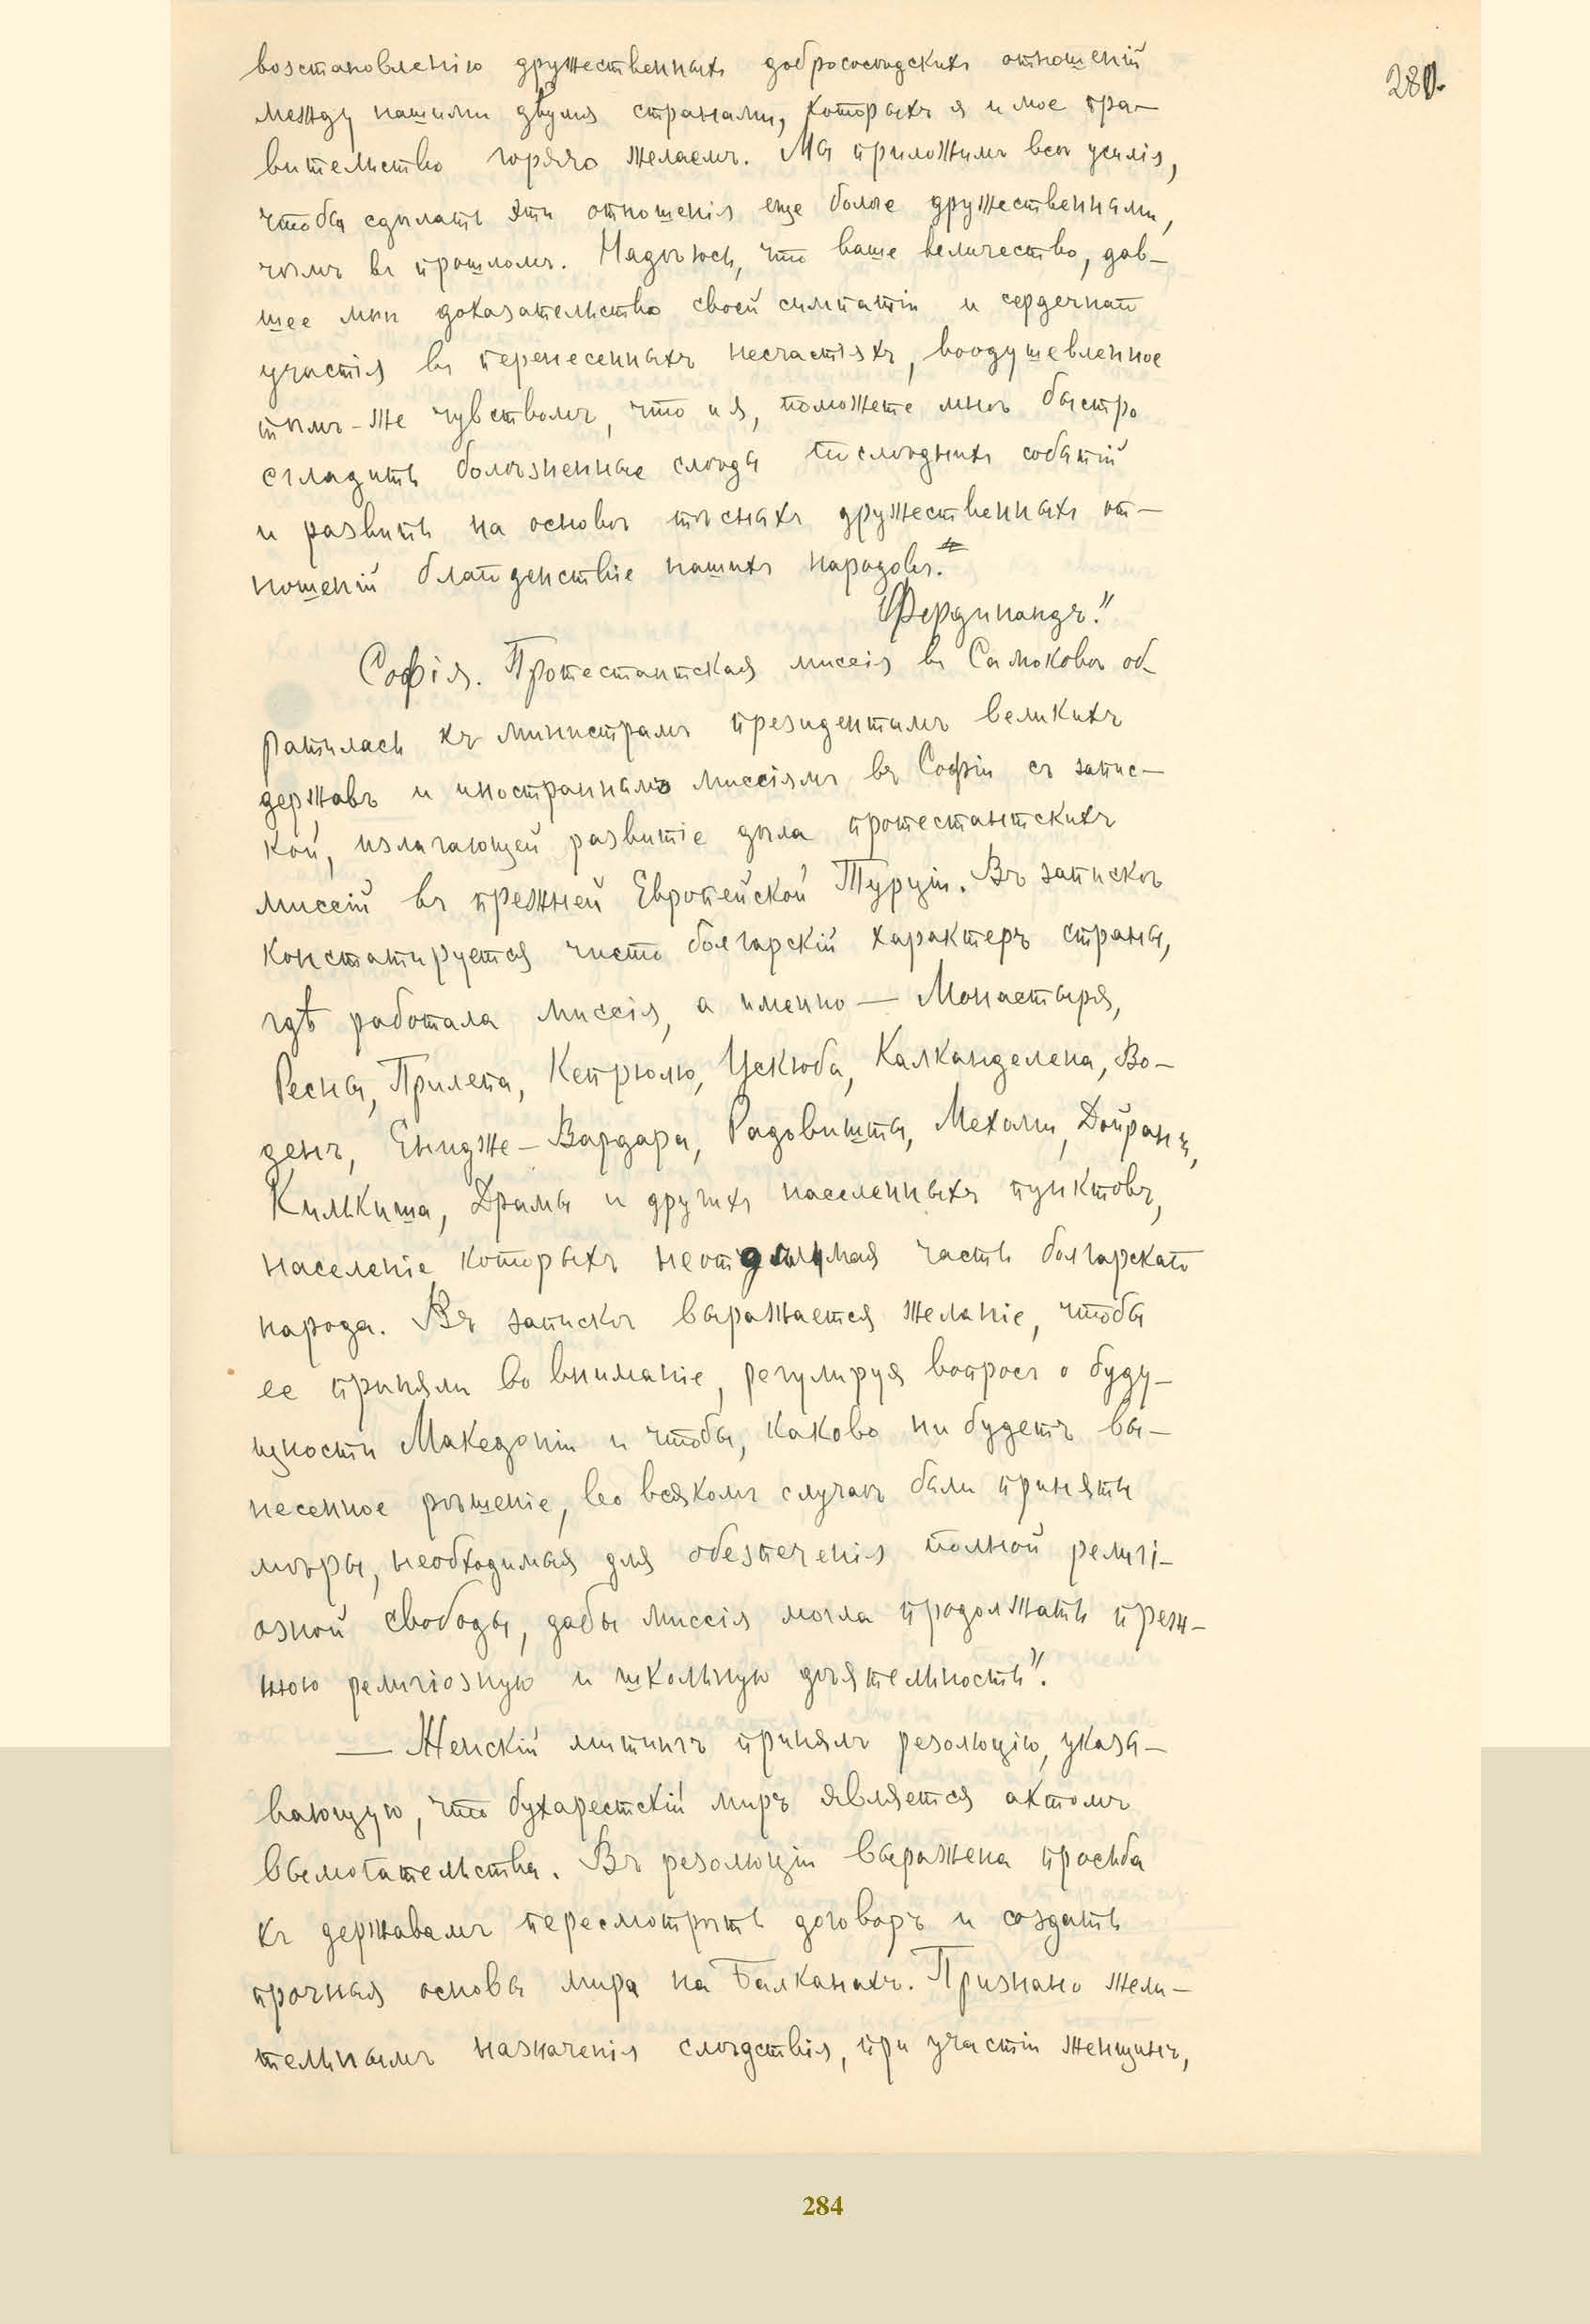 280.
возстановленію дружественныхъ добрососѣдскихъ отношеній
между нашими двумя странами, которыхъ я и мое пра-
вительство горячо желаемъ. Мы приложимъ всѣ усилія,
чтобы сдѣлать эти отношенія еще болѣе дружественными,
чѣмъ въ прошломъ. Надѣюсь, что ваше величество, дав-
шее мнѣ доказательство своей симпатіи и сердечнаго
участія въ перенесенныхъ несчастіяхъ, воодушевленное
тѣмъ-же чувствомъ, что и я, поможете мнѣ быстро
сгладить болѣзненные слѣды послѣднихъ событій
и развить на основѣ тѣсныхъ дружественныхъ от-
ношеній благоденствіе нашихъ народовъ.
Фердинандъ."
Софія. Протестантская миссія въ Самоковѣ об-
ратилась къ министрамъ президентамъ великихъ
державъ и иностраннымъ миссіямъ въ Софіи съ запис-
кой, излагающей развитіе дѣла протестантскихъ
миссій въ прежней Европейской Турціи. Въ запискѣ
констатируется чисто болгарскій характеръ страны,
гдѣ работала миссія, а именно — Монастыря,
Ресны, Прилепа, Кепрюлю, Ускюба, Калканделена, Во-
денъ, Енидже-Вардара, Радовишты, Мехоміи, Дойранъ,
Килькиша, Драмы и другихъ населенныхъ пунктовъ,
населеніе которыхъ неотдѣлимая часть болгарскаго
народа. Въ запискѣ выражается желаніе, чтобы
ее приняли во вниманіе, регулируя вопросъ о буду-
щности Македоніи и чтобы, каково ни будетъ вы-
несенное рѣшеніе, во всякомъ случаѣ были приняты
мѣры, необходимыя для обезпеченія полной религі-
озной свободы, дабы миссія могла продолжать преж-
нюю религіозную и школьную дѣятельность".
— Женскій митингъ принялъ резолюцію, указы-
вающую, что бухарестскій миръ является актомъ
вымогательства. Въ резолюціи выражена просьба
къ державамъ пересмотрѣть договоръ и создать
прочныя основы мира на Балканахъ. Признано жела-
тельнымъ назначенія слѣдствія, при участіи женщинъ,
284